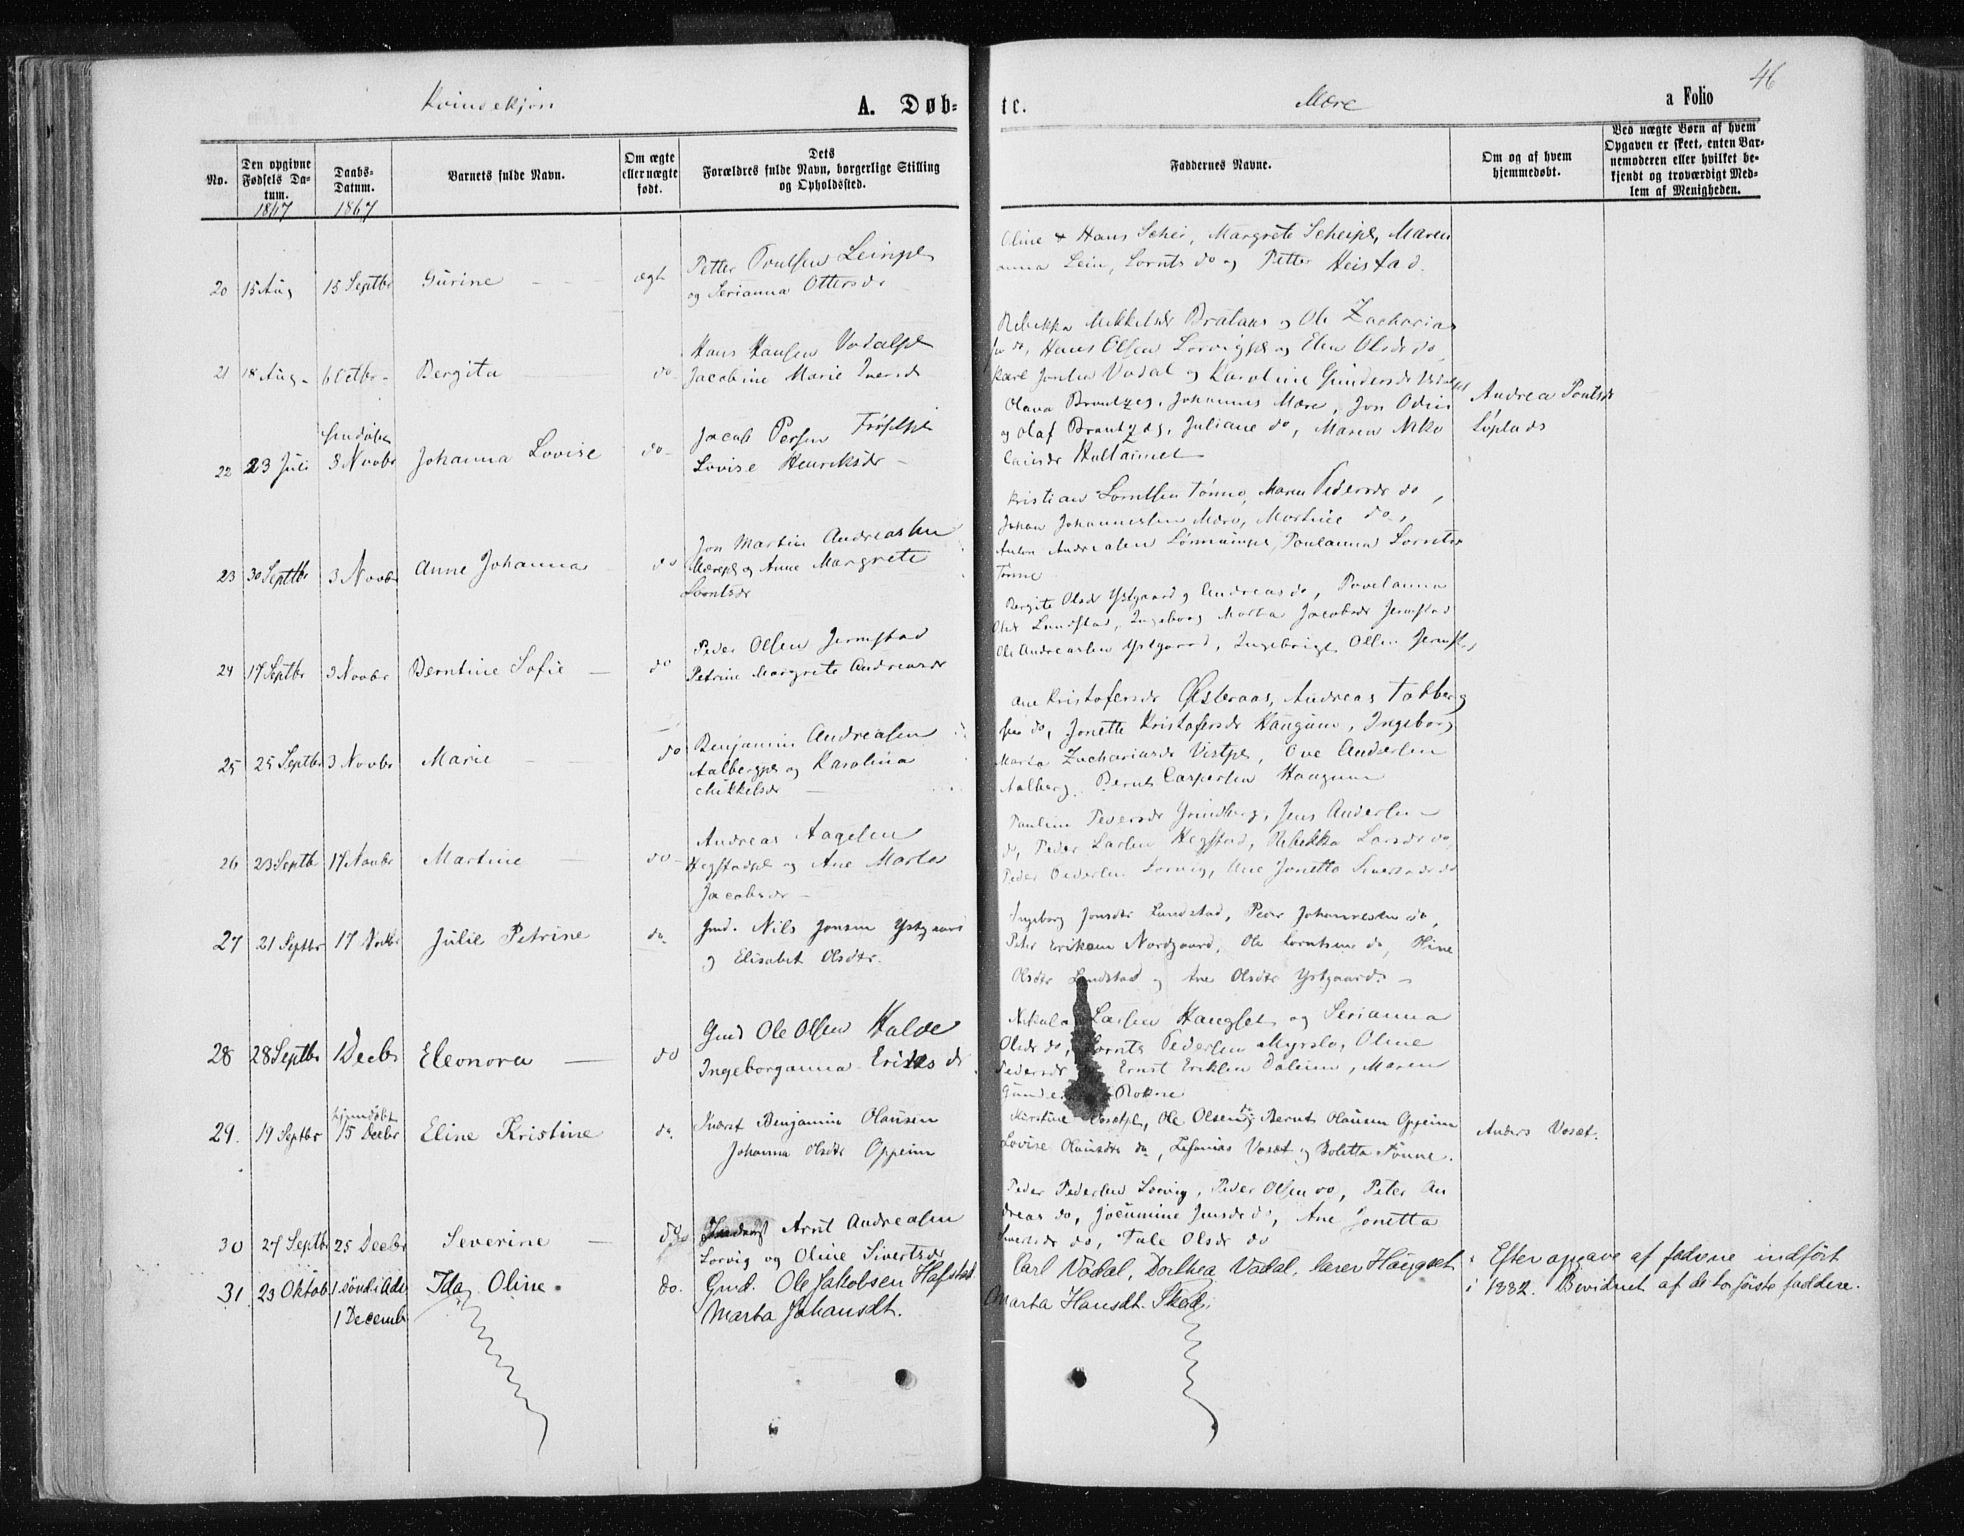 46
Kvindekjøn A. Døb-
te. Mære a Folio
No.
Den opgivne Fødsels Da-
tum.
1867
Daabs-
Datum.
1867
Barnets fulde Navn.
Om ægte
eller uægte
født.
Dets
Forældres fulde Navn, borgerlige Stilling
og Opholdssted.
Faddernes Navne.
Om og af hvem
hjemmedøbt.
Ved uægte Børn af hvem
Opgaven er skeet, enten Bar-
nemoderen eller hvilket be-
kjendt og troværdigt Med-
lem af Menigheden.
20 15 Aug 15 Septbr Gurine ægt
Petter Poulsen Leinpl
og Serianna Ottersdr
Oline & Hans Schei, Margrete Scheipl, Maren
anna Lein, Lornts do og Petter Heistad.
21 18 Aug 6 Octbr Bergita do
Hans Hansen Vadalpl
Jacobine Marie Iversdr
Rebekka Mikkelsdr Brataas og Ole Zacharias
sen do, Hans Olsen Lorvigpl og Elen Olsdr do,
Karl Jonsen Vadal og Karoline Gundersdr Vadalpl
22 23 Juli 3 Novbr Johanna Lovise do
Jacob Persen
Lovise Henriksdr
Olava Brandzeg, Johannes Mære, Jon Odin
og Olaf Brandzeg, Juliane do, Maren Niko
laisdr
Andrea Poulsdr
23 30 Septbr 3 Novbr Anne Johanna do
Jon Martin Andreassen
Mærepl og Anne Margrete
Lorntsdr
Kristian Lorntsen Tønne, Maren Pedersdr do,
Johan Johannessen Mære, Martine do,
Anton Andreasen Paulanna Lorntsdr
Tønne
24 17 Septbr 3 Novbr Berntine Sofie do
Peder Olsen Jermstad
Petrine Margrete Andreasdr
Bergite Olsdr Ystgaard og Andreas do, Povelanna
Olsdr Lundstad, Ingeborg Marta Jacobsdr Jermstad
Ole Andreassen Ystgaard, Ingebrigt Olsen Jermst.
25 25 Septbr 3 Novbr Marie do
Benjamin Andreasen
Aalbergpl og Karolina
Mikkelsdr
Ane Kristofersdr Østeraas, Andreas
sen do, Jonette Kristofersdr Haugum, Ingeborg
Marta Zachariasdr Vistpl, Ove Andersen
Aalberg, Bernt Caspersen Haugum
26 23 Septbr 17 Novbr Martine do
Andreas Aagesen
Hegstadpl og Ane Marta
Jacobsdr
Pauline Pedersdr Grindberg, Jens Andersen
do, Peder Larsen Hegstad, Rebekka Larsdr do,
Peder Pedersen Lorvig, Ane Jonetta Sivertsdr do
27 21 Septbr 17 Novbr Julie Petrine do
Gmd. Nils Jonsen Ystgaard
og Elisabet Olsdtr.
Ingeborg Jonsdtr Lundstad, Peder Johannesen do,
Peter Eriksen Nordgaard, Ole Lorntsen do, Oline
Olsdtr Lundstad og Ane Olsdtr Ystgaard
28 28 Septbr 1 Decbr Eleonora do
Gmd Ole Olsen Halve
Ingeborganna Eriksdr
Nikolai Larsen Haugset og Serianna
Olsdr do, Lornts Pedersen Myrslo, Oline
Pedersdr Ernst Eriksen Daleim, Maren
Gunde Rokne
29. 19 Septbr hjemdøbt 15 Decbr Eline Kristine do.
Indrst Benjamin Olausen
Johanna Olsdtr Oppeim
Kirstine Vosetpl, Ole Olsen do, Bernt Olausen Oppeim
Lovise Olausdtr do, Zefanias Voset og Boletta Tønne.
Anders Voset.
30 27 Septbr 25 Decbr Severine do
Arnt Andreasen
Lorvig og Oline Sivertsdr
Peder Pedersen Lorvig, Peder Olsen do, Peter An
dreas do, Jocumine Jensdr do, Ane Jonetta
Sivertsdr do, Tale Olsdr do
31. 23 Oktob 1. sønd. i Adv. 1 Decemb Ida Oline. do.
Gmd. Ole Jakobsen Hafstad
Marta Johansdt.
Carl Vadal, Dorthea Vadal, Karen Haugset
Marta Hansdt. Skei
Efter opgave af fadrene indført
i 1882. Bevidnet af de to første faddere.